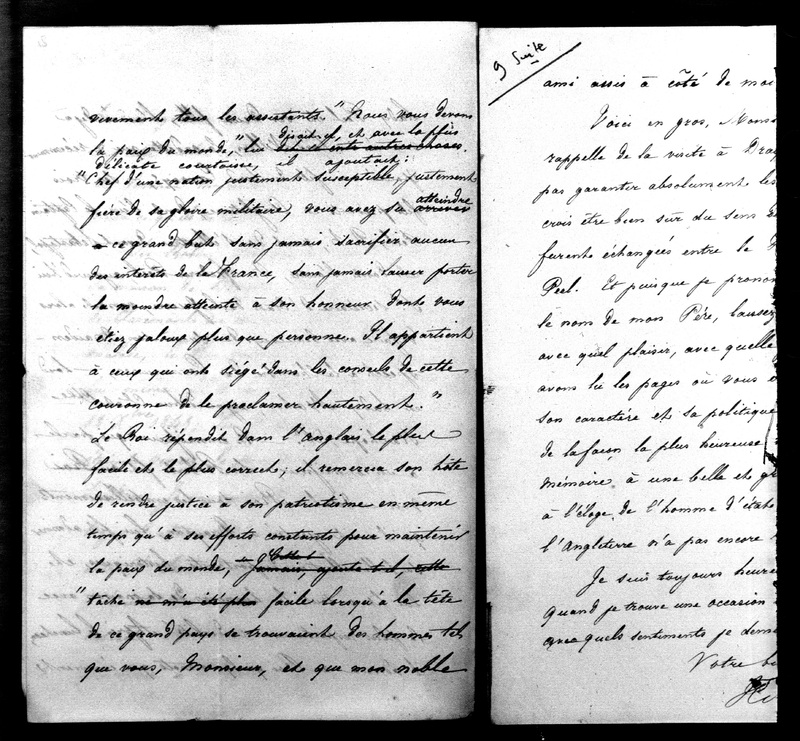 vivement tous les assistants. "Nous vous devons
la paix du monde," lui disait-il, et avec la plus
délicate courtoisie, il ajoutait:
"Chef d'une nation justement susceptible, justement
fière de sa gloire militaire, vous avez su atteindre
ce grand but sans jamais sacrifier aucun
des interets de la France, sans jamais laisser porter
la moindre atteinte à son honneur dont vous
etiez jaloux plus que personne. Il appartient
à ceux qui ont siégé dans les conseils de cette
couronne de le proclamer hautement."
Le Roi répondit dans l'anglais le plus
facile et le plus correct; il remercia son hôte
de rendre justice à son patriotisme en même
temps qu'à ses efforts constants pour maintenir
la paix du monde, Jamais, ajouta-t-il, cette
"tâche ne m'a été plus facile lorsqu'à la tête
de ce grand pays se trouvaient des hommes tel
que vous, Monsieur, et que mon noble
9 Suite
ami assis à côté de moi
Voici en gros, Mons
rappelle de la visite à Dray
pas garantir absolument les
crois être bien sûr du sens
furent échangés entre le
Peel. Et puisque je pronon
le nom de mon Père, laissez
avec quel plaisir, avec quelle
avons lu les pages où vous
son caractère et sa politique
de la façon la plus heureuse
mémoire à une belle et g
à l'éloge de l'homme d'état
l'Angleterre n'a pas encore
Je suis toujours heure
quand je trouve une occasion
avec quels sentiments je deme
Votre b